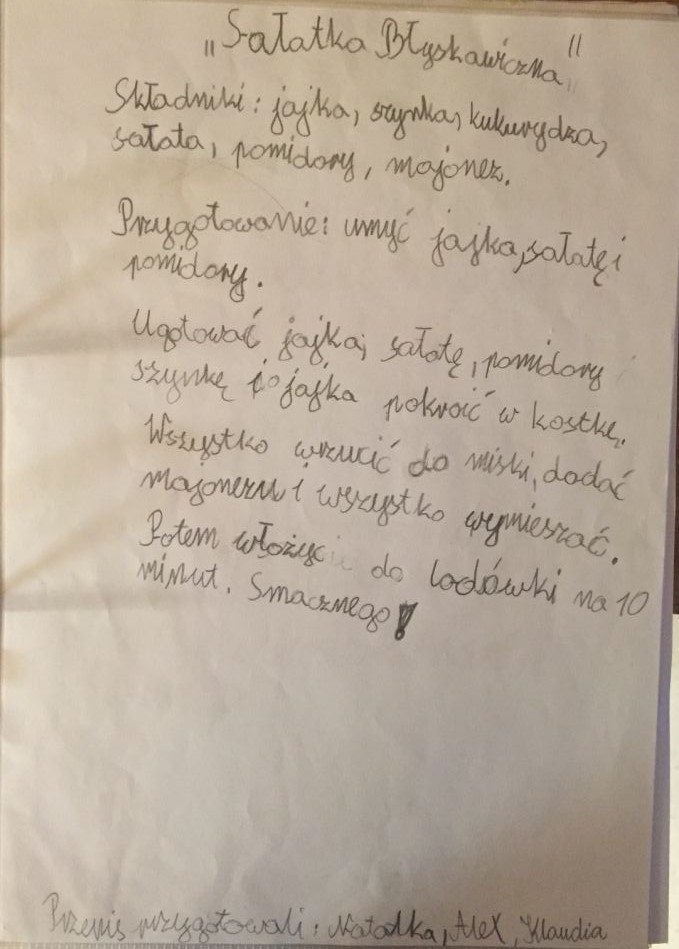 "Sałatka Błyskawiczna"
Składniki: jajka, szynka, kukurydza,
sałata, pomidory, majonez.
Przygotowanie: umyć jajka, sałatę i
pomidory.
Ugotować jajka, sałatę, pomidory
szynkę i jajka pokroić w kostkę.
Wszystko wrzucić do miski, dodać
majonezu i wszystko wymieszać.
Potem włożyć do lodówki na 10
minut. Smacznego!
Przepis przygotowali: Natalka, Alex, Klaudia